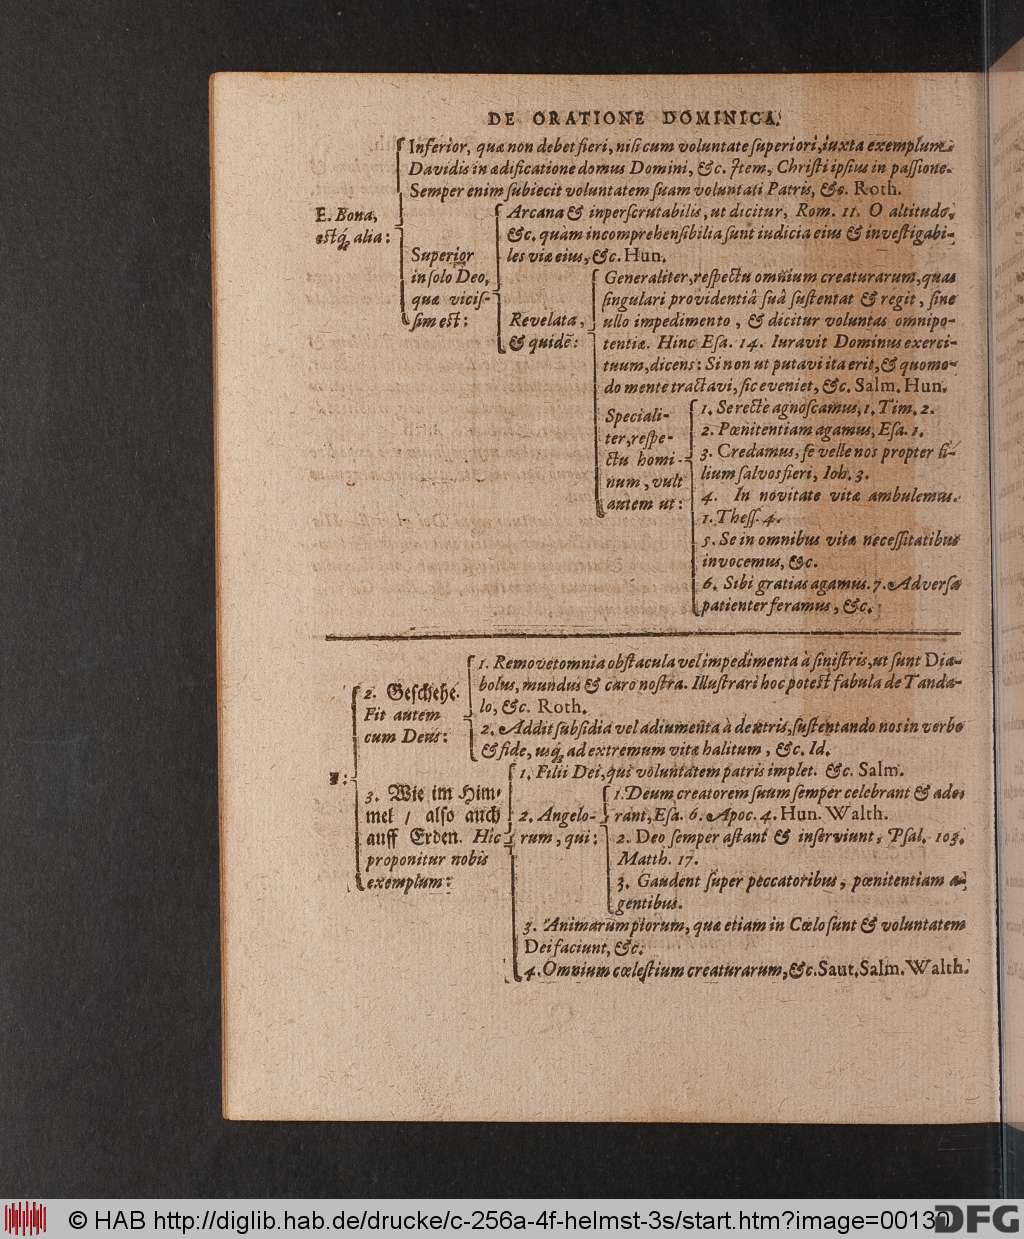 DE ORATIONE DOMINICA.
Inferior, quæ non debet fieri, nisi cum voluntate superiori, iuxta exemplum
Davidis in ædificatione domus Domini, &c. Item, Christi ipsius in passione.
Semper enim subiecit voluntatem suam voluntati Patris, &c. Roth.
E. Bona,
estq́; alia:
Superior
in solo Deo,
quæ vicis-
sim est:
Arcana & inperscrutabilis, ut dicitur, Rom. 11. O altitudo,
&c. quàm incomprehensibilia sunt iudicia eius & investigabi-
les viæ eius, &c. Hun.
Revelata,
& quidē:
Generaliter, respectu omnium creaturarum, quas
singulari providentiâ suâ sustentat & regit, sine
ullo impedimento, & dicitur voluntas omnipo-
tentiæ. Hinc Esa. 14. Iuravit Dominus exerci-
tuum, dicens: Si non ut putavi ita erit, & quomo-
do mente tractavi, sic eveniet, &c. Salm. Hun.
Speciali-
ter, respe-
ctu homi-
num, vult
autem ut:
1. Se rectè agnoscamus, 1. Tim. 2.
2. Pœnitentiam agamus, Esa. 1.
3. Credamus, se velle nos propter fi-
lium salvos fieri, Ioh. 3.
4. In novitate vitæ ambulemus.
1. Thess. 4.
5. Se in omnibus vitæ necessitatibus
invocemus, &c.
6. Sibi gratias agamus. 7. Adversa
patienter feramus, &c.
2. Geschehe.
Fit autem
cum Deus:
1. Removet omnia obstacula vel impedimenta à sinistris, ut sunt Dia-
bolus, mundus & caro nostra. Illustrari hoc potest fabula de Tanda-
lo, &c. Roth.
2. Addit subsidia vel adiumenta à dextris, sustentando nos in verbo
& fide, usq́; ad extremum vitæ halitum, &c. Id.
3. Wie im Him-
mel / also auch
auff Erden. Hic
proponitur nobis
exemplum:
1. Filii Dei, qui voluntatem patris implet. &c. Salm.
2. Angelo-
rum, qui:
1. Deum creatorem suum semper celebrant & ado-
rant, Esa. 6. Apoc. 4. Hun. Walth.
2. Deo semper astant & inserviunt, Psal. 103.
Matth. 17.
3. Gaudent super peccatoribus, pœnitentiam a-
gentibus.
3. Animarum piorum, quæ etiam in Cœlo sunt & voluntatem
Dei faciunt, &c.
4. Omnium cœlestium creaturarum, &c. Saut. Salm. Walth.
© HAB http://diglib.hab.de/drucke/c-256a-4f-helmst-3s/start.htm?image=00130
DFG